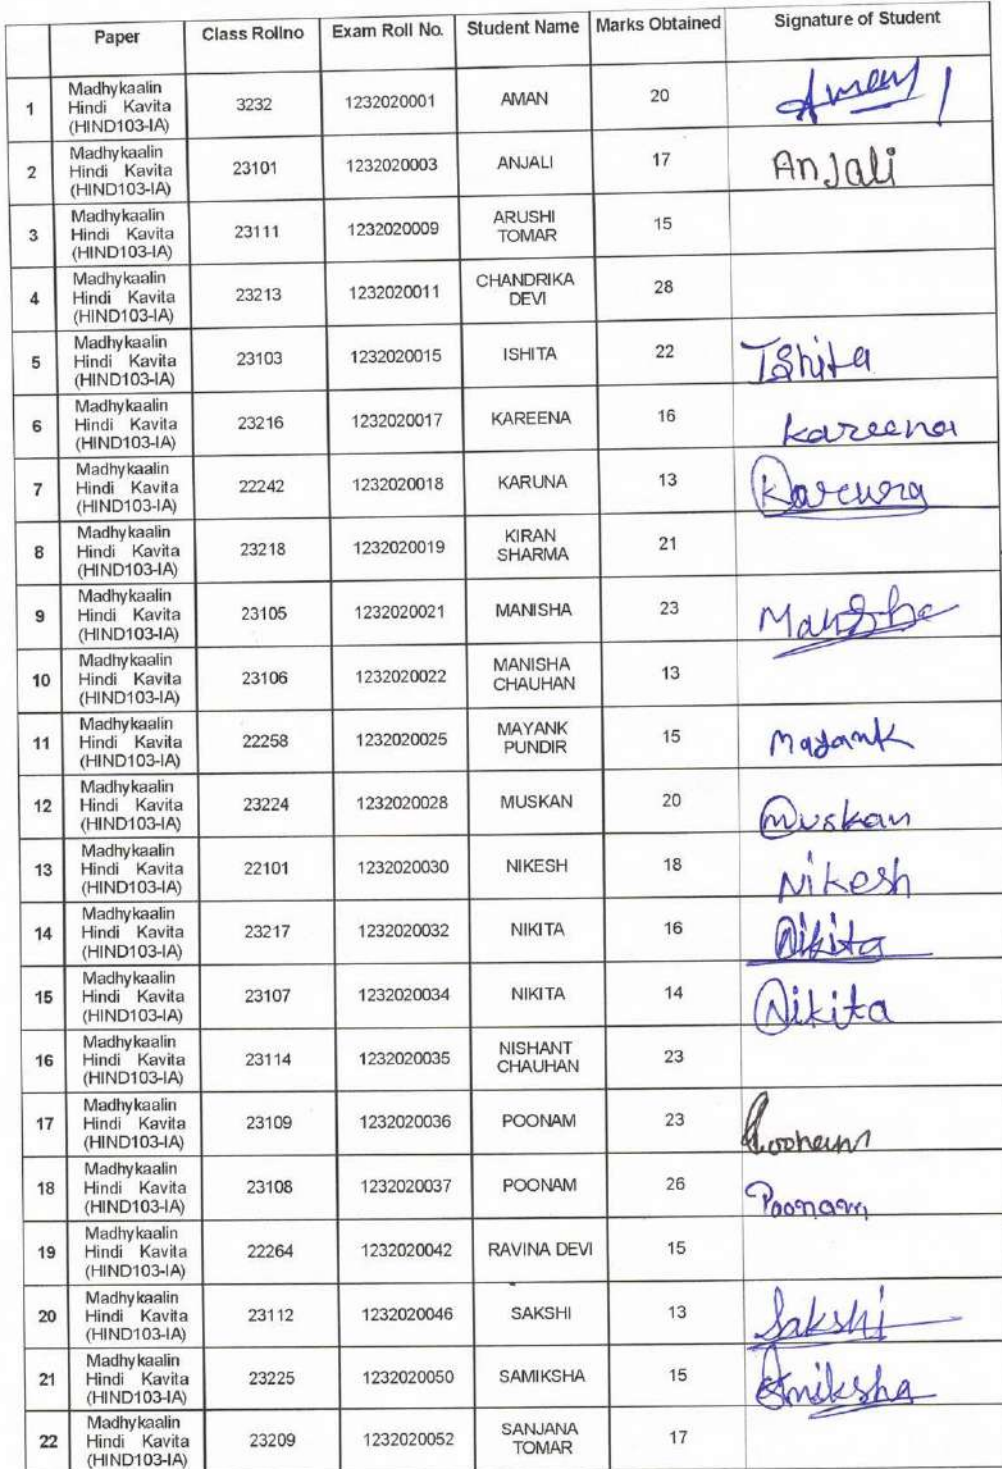 Paper Class Rollno Exam Roll No. Student Name Marks Obtained Signature of Student
1 Madhykaalin Hindi Kavita (HIND103-IA) 3232 1232020001 AMAN 20 Aman
2 Madhykaalin Hindi Kavita (HIND103-IA) 23101 1232020003 ANJALI 17 AnJali
3 Madhykaalin Hindi Kavita (HIND103-IA) 23111 1232020009 ARUSHI TOMAR 15
4 Madhykaalin Hindi Kavita (HIND103-IA) 23213 1232020011 CHANDRIKA DEVI 28
5 Madhykaalin Hindi Kavita (HIND103-IA) 23103 1232020015 ISHITA 22 Ishita
6 Madhykaalin Hindi Kavita (HIND103-IA) 23216 1232020017 KAREENA 16 kareena
7 Madhykaalin Hindi Kavita (HIND103-IA) 22242 1232020018 KARUNA 13 Karuna
8 Madhykaalin Hindi Kavita (HIND103-IA) 23218 1232020019 KIRAN SHARMA 21
9 Madhykaalin Hindi Kavita (HIND103-IA) 23105 1232020021 MANISHA 23 Manisha
10 Madhykaalin Hindi Kavita (HIND103-IA) 23106 1232020022 MANISHA CHAUHAN 13
11 Madhykaalin Hindi Kavita (HIND103-IA) 22258 1232020025 MAYANK PUNDIR 15 Mayank
12 Madhykaalin Hindi Kavita (HIND103-IA) 23224 1232020028 MUSKAN 20 Muskan
13 Madhykaalin Hindi Kavita (HIND103-IA) 22101 1232020030 NIKESH 18 Nikesh
14 Madhykaalin Hindi Kavita (HIND103-IA) 23217 1232020032 NIKITA 16 Nikita
15 Madhykaalin Hindi Kavita (HIND103-IA) 23107 1232020034 NIKITA 14 Nikita
16 Madhykaalin Hindi Kavita (HIND103-IA) 23114 1232020035 NISHANT CHAUHAN 23
17 Madhykaalin Hindi Kavita (HIND103-IA) 23109 1232020036 POONAM 23 Poonam
18 Madhykaalin Hindi Kavita (HIND103-IA) 23108 1232020037 POONAM 26 Poonam
19 Madhykaalin Hindi Kavita (HIND103-IA) 22264 1232020042 RAVINA DEVI 15
20 Madhykaalin Hindi Kavita (HIND103-IA) 23112 1232020046 SAKSHI 13 Sakshi
21 Madhykaalin Hindi Kavita (HIND103-IA) 23225 1232020050 SAMIKSHA 15 Smiksha
22 Madhykaalin Hindi Kavita (HIND103-IA) 23209 1232020052 SANJANA TOMAR 17